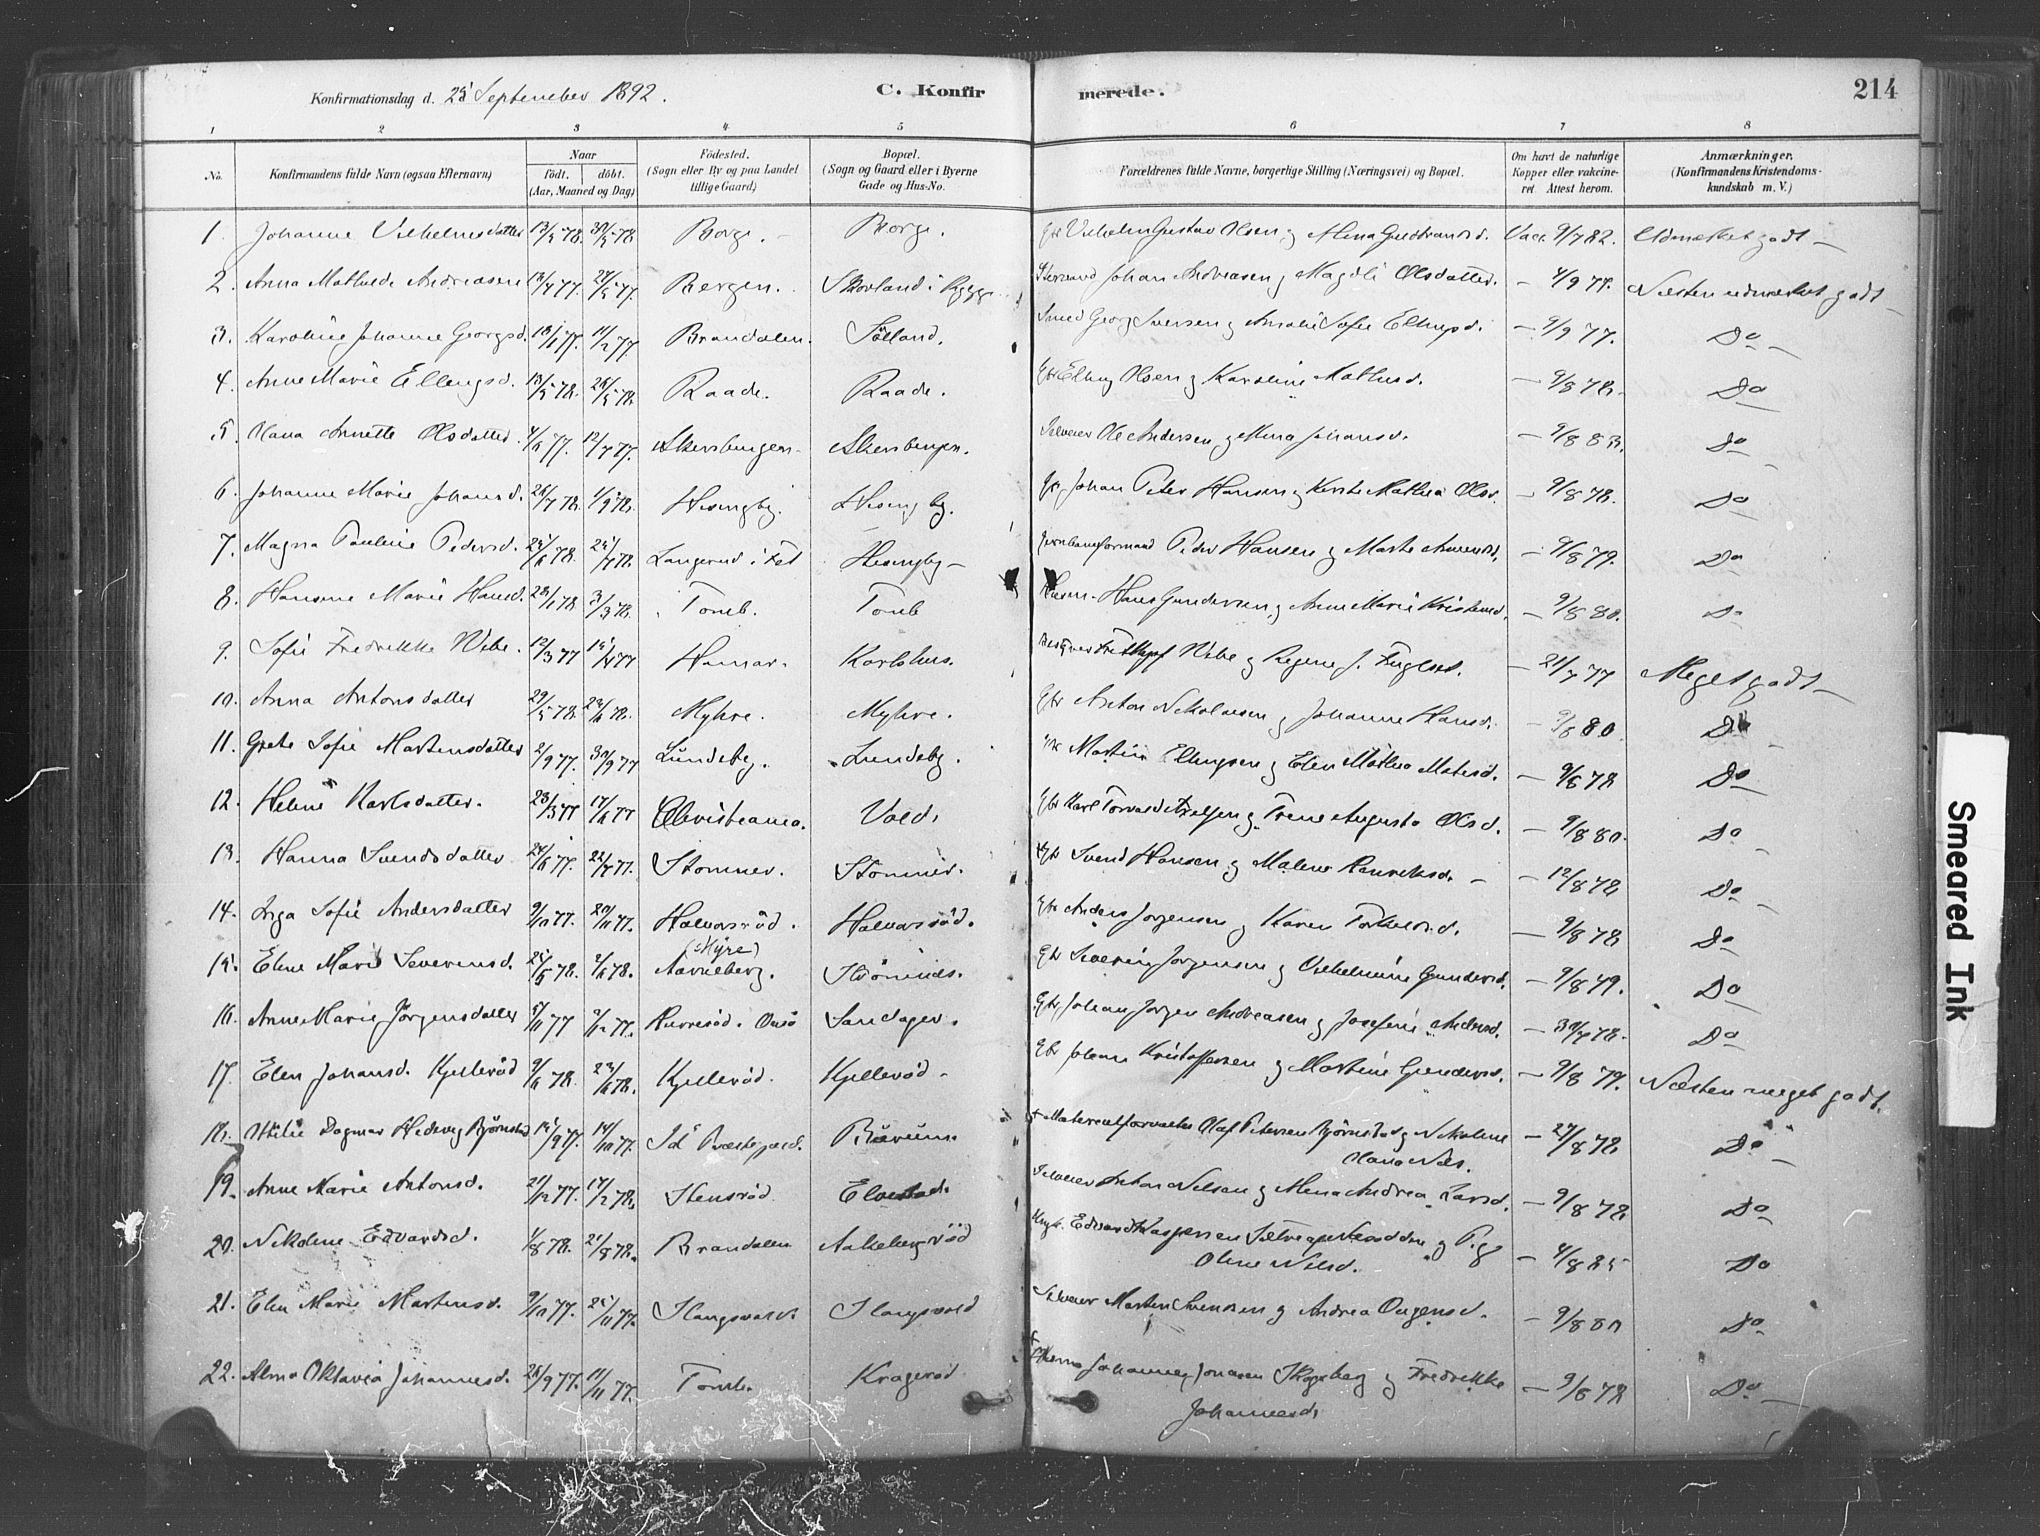 Konfirmationsdag d. 25 September 1892.
C. Konfirmerede.
214
1 2 3 4 5 6 7 8
No. Konfirmandens fulde Navn (ogsaa Efternavn) Naar født. døbt. (Aar, Maaned og Dag) Fødested. (Sogn eller By og paa Landet tillige Gaard) Bopæl. (Sogn og Gaard eller i Byerne Gade og Hus-No. Forældrenes fulde Navne, borgerlige Stilling (Næringsvei) og Bopæl. Om havt de naturlige Kopper eller vakcineret Attest herom. Anmærkninger. (Konfirmandens Kristendomskundskab m. V.)
1. Johanne Vilhelmsdatter 13/3 78. 30/5 78 Borge. Borge. Gbr Vilhelm Gustav Olsen og Mina Gudbrandsd. Vacc. 9/7 82. Udmærket godt
2. Anna Mathilde Andreasen 13/4 77. 27/5 77. Bergen. Skovland i Rygge Johan Andreasen og Magdli Olsdatter. 4/9 77. Næsten udmærket godt
3. Karoline Johanne Georgsd. 18/1 77. 11/2 77. Brandalen. Sølland. Smed Georg Iversen og Amalie Sofie Ellingsd. 9/9 77. Do
4. Anne Marie Ellingsd. 13/5 78. 26/5 78. Raade. Raade. Gbr Elling Olsen og Karoline Mathisd. 9/8 78. Do
5. Olava Annette Olsdatter 4/6 77. 12/7 77. Akersbergen. Akersbergen. Selveier Ole Andersen og Mina Johansd. 9/8 83. Do
6. Johanne Marie Johansd. 26/7 78. 1/9 78. Hesengby. Hesengby. Gbr Johan Peter Hansen og Kirste Mathea Olsd. 9/8 78. Do
7. Magna Pauline Pedersd. 25/6 78. 25/7 78. Langerud i Fet Hesengby Jernbaneformand Peder Hansen og Marthe Amundsd. 9/8 79. Do
8. Hansine Marie Hansd. 28/1 78 3/3 78. Tomb. Tomb Husm. Hans Gundersen og Anne Marie Kristensd. 9/8 80. Do
9. Sofie Fredrikke Wibe. 12/3 77 15/4 77 Hamar. Karlshus. Wibe og Regine J. Fuglset. 21/7 77 Meget godt
10. Anna Antonsdatter 29/5 78. 23/6 78. Myhre. Myhre. Gbr Anton Nikolaisen og Johanne Hansd. 9/8 80. Do
11. Grete Sofie Martinsdatter 2/9 77. 30/9 77 Lundeby. Lundeby. Gbr Martin Ellingsen og Elen Mathea Matisd. 9/8 78 Do
12. Helene Karlsdatter. 23/3 77 17/6 77 Christiania. Vold. Gbr Karl Torvald Axelsen og Trine Augusta Olsd. 9/8 80. Do
13. Hanna Svendsdatter 24/6 77. 22/7 77. Stomner. Stomner. Gbr Svend Hansen og Malene Henriksd. 12/8 78 Do
14. Inga Sofie Andersdatter 9/10 77. 20/11 77. Halvorsrød. Halvorsrød. Gbr Anders Jørgensen og Karen Torkelsd. 9/8 78 Do
15. Eline Marie Severinsd. 25/5 78. 2/6 78. (Myre) Aarneberg. Strømnes. Gbr Severin Jørgensen og Vilhelmine Gundersd. 9/8 79. Do
16. Anne Marie Jørgensdatter 5/11 77 2/12 77. Onsø Sandager. Gbr, Johan Jørgen Andreasen og Josefine Andersd. 30/7 78. Do
17. Elen Johansd. Kjellerød 9/6 78. 23/6 78. Kjellerød. Kjellerød. Gbr Johan Kristoffersen og Martine Gundersd. 9/8 79. Næsten meget godt.
18. Ottilie Dagmar Hedevig Bjørnstad 15/9 77. 14/10 77. Id Prestegaard. Bærum. + Materialforvalter Olaf Petersen Bjørnstad og Nikoline
Olava Næs. 27/8 78 Do
19. Anne Marie Antonsd. 21/12 77. 17/2 78. Stensrød Elvestad. Selveier Anton Nilsen og Mina Andrea Larsd. 9/8 78. Do
20. Nikoline Edvardsd. 1/8 78. 21/8 78. Brandalen Aakebergrød Edvard Kaspersen og Pige
Oline Nilsd. 4/8 85 Do
21. Elen Marie Martinsd. 9/10 77. 25/11 77. Slangsvold. Slangsvold Selveier Martin Svendsen og Andrea Ougensd. 9/8 80 Do
22. Alma Oktavia Johannesd. 26/9 77. 11/11 77. Tomb. Kragerød + Johannes Jonasen Skogsberg og Fredrikke
Johannesd. 9/8 78 Do
Smeared Ink